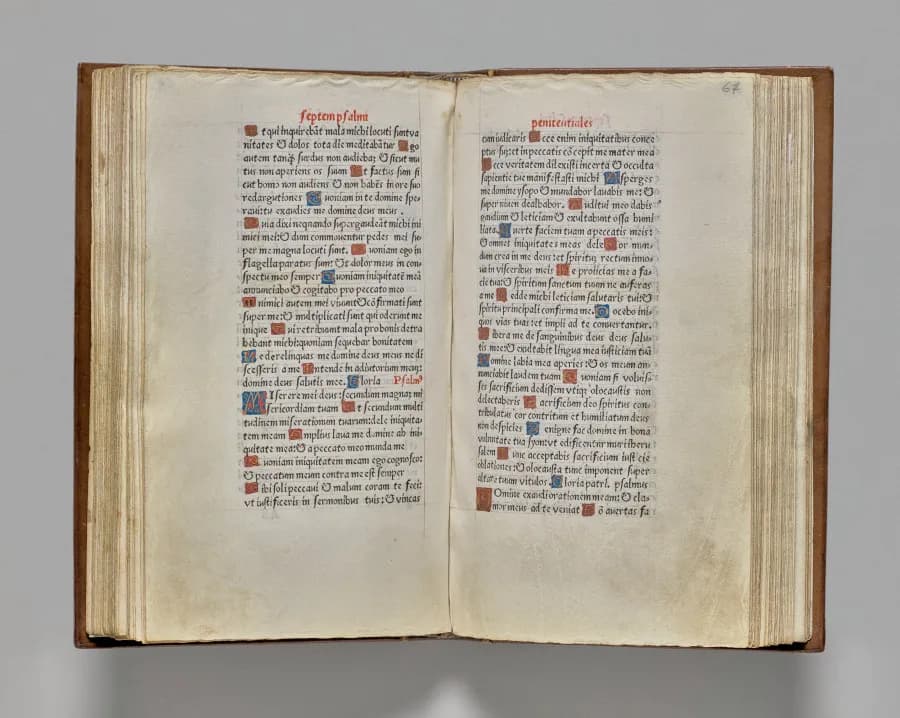 septem psalmi
Et qui inquirebāt mala michi locuti sunt va
nitates & dolos tota die meditabātur Ego
autem tanq̄ surdus non audiebā; & sicut mu
tus non aperiens os suum Et factus sum si
cut homo non audiens & non habēs in ore suo
redargutiones Quoniam in te domine spe-
raui tu exaudies me domine deus meus .
Quia dixi nequando supergaudeāt michi ini
mici mei: & dum commouentur pedes mei su-
per me magna locuti sunt. Quoniam ego in
flagella paratus sum: & dolor meus in con-
spectu meo semper Quoniam iniquitatē meā
annunciabo & cogitabo pro peccato meo
Inimici autem mei viuunt & cōfirmati sunt
super me: & multiplicati sunt qui oderunt me
inique Qui retribuunt mala pro bonis detra
hebant michi: quoniam sequebar bonitatem
Ne derelinquas me domine deus meus ne di
scesseris a me Intende in adiutorium meum:
domine deus salutis mee. Gloria Psalm⁹
MIserere mei deus: secundum magnā mi
sericordiam tuam Et secundum multi
tudinem miserationum tuarum: dele iniquita-
tem meam Amplius laua me domine ab ini-
quitate mea: & a peccato meo munda me
Quoniam iniquitatem meam ego cognosco:
& peccatum meum contra me est semper
Tibi soli peccaui & malum coram te feci:
vt iustificeris in sermonibus tuis: & vincas
penitentiales 67
cum iudicaris Ecce enim iniquitatibus conce
ptus suz: et in peccatis cōcepit me mater mea
Ecce veritatem dilexisti incerta & occulta
sapientie tue manifestasti michi Asperges
me domine ysopo & mundabor lauabis me: &
super niuem dealbabor. Auditui meo dabis
gaudium & leticiam & exultabunt ossa humi
liata. Auerte faciem tuam a peccatis meis:
& omnes iniquitates meas dele Cor mun-
dum crea in me deus: et spiritū rectum inno-
ua in visceribus meis Ne proiicias me a fa-
cie tua: & spiritum sanctum tuum ne auferas
a me Redde michi leticiam salutaris tui: &
spiritu principali confirma me. Docebo ini-
quos vias tuas: et impii ad te conuertantur.
Libera me de sanguinibus deus deus salu-
tis mee: & exultabit lingua mea iusticiam tuā
Domine labia mea aperies: & os meum an-
nunciabit laudem tuam Quoniam si voluis-
ses sacrificium dedissem vtiq; olocaustis non
delectaberis Sacrificium deo spiritus con-
tribulatus cor contritum et humiliatum deus
non despicies Benigne fac domine in bona
voluntate tua syon: vt edificentur muri hieru
salem Tunc acceptabis sacrificium iusticie
oblationes: & olocausta tunc imponent super
altare tuum vitulos. Gloria patri. psalmus
DOmine exaudi orationem meam: & cla-
mor meus ad te veniat Nō auertas fa